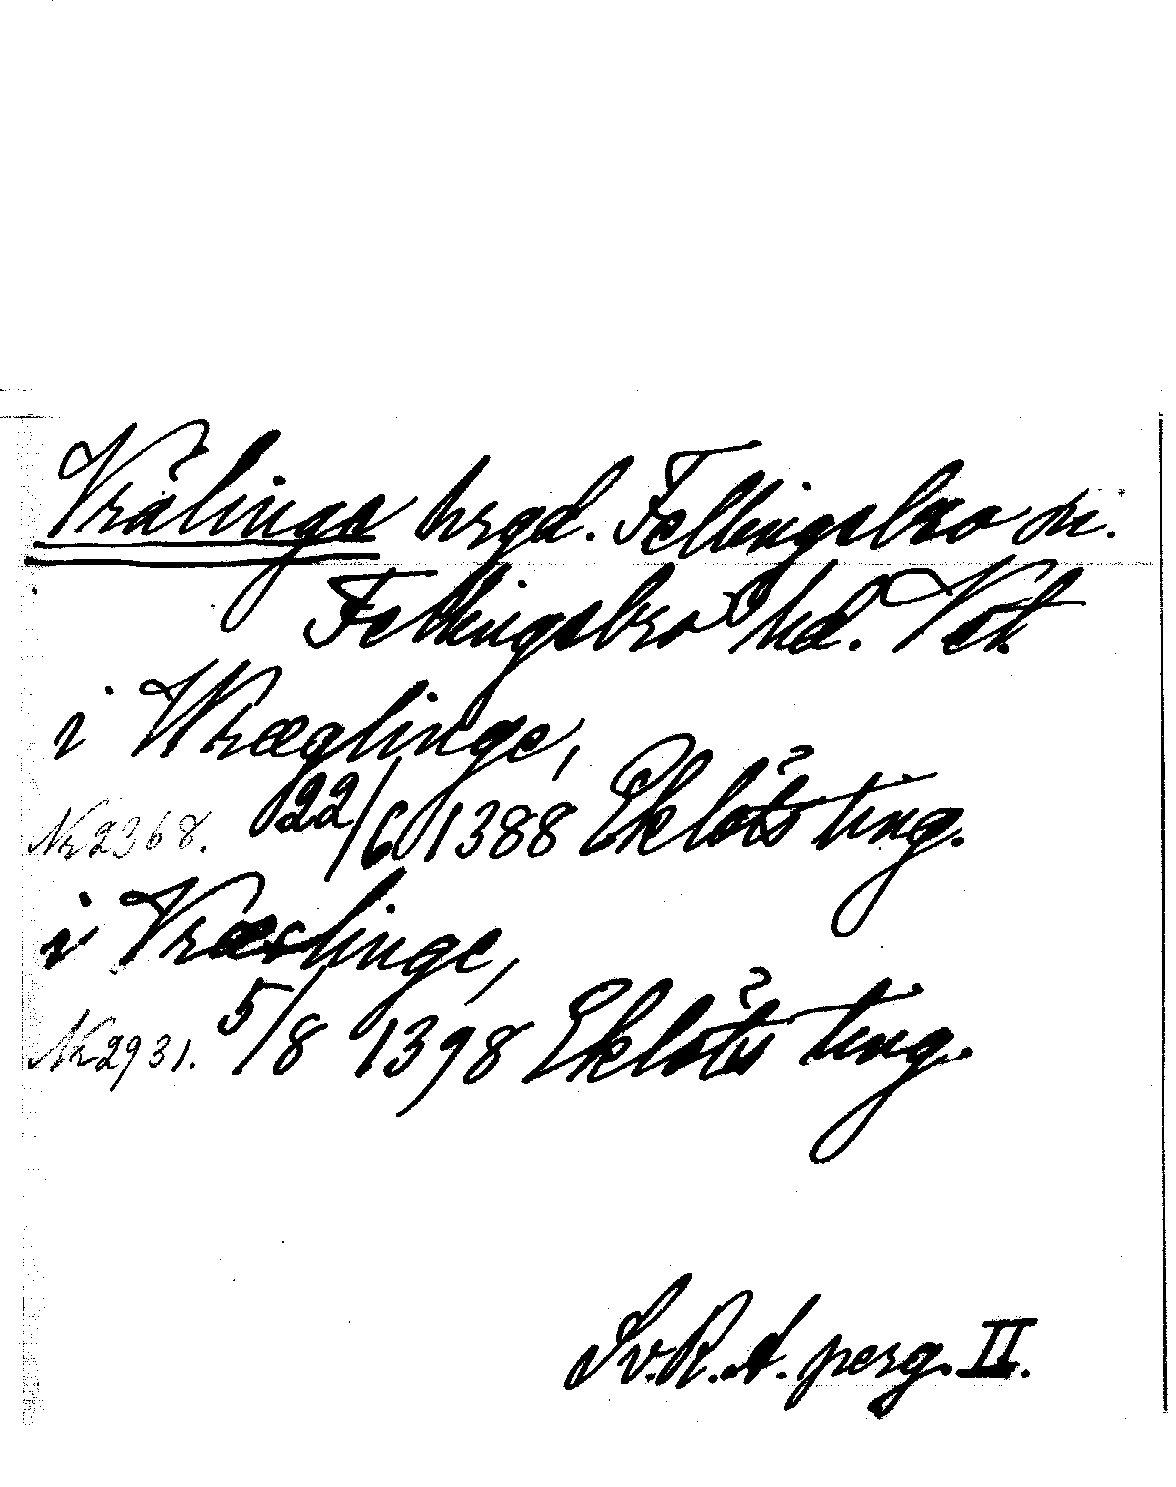 Vrålinga hrgd. Fellingsbro sn.
Fellingsbro hd. Vstm
i Wræglinge,
Nr 2368. 22/6 1388 Eklöts ting.
i Vræslinge,
Nr 2931. 5/8 1398 Eklöts ting.
Sv.R.A. perg. II.